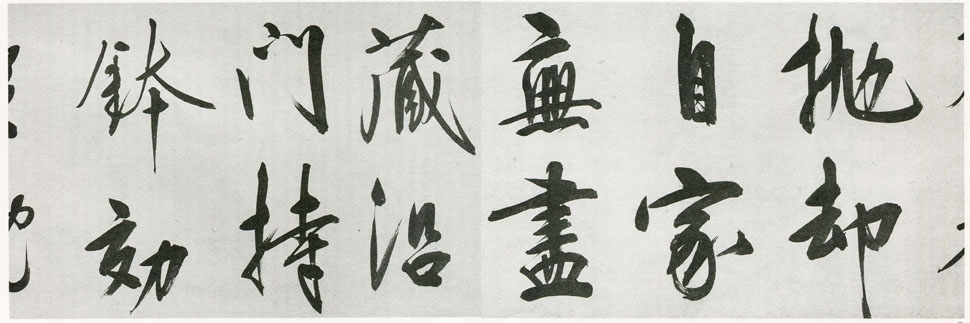 抛却
自家
無盡
藏沿
門持
鉢効